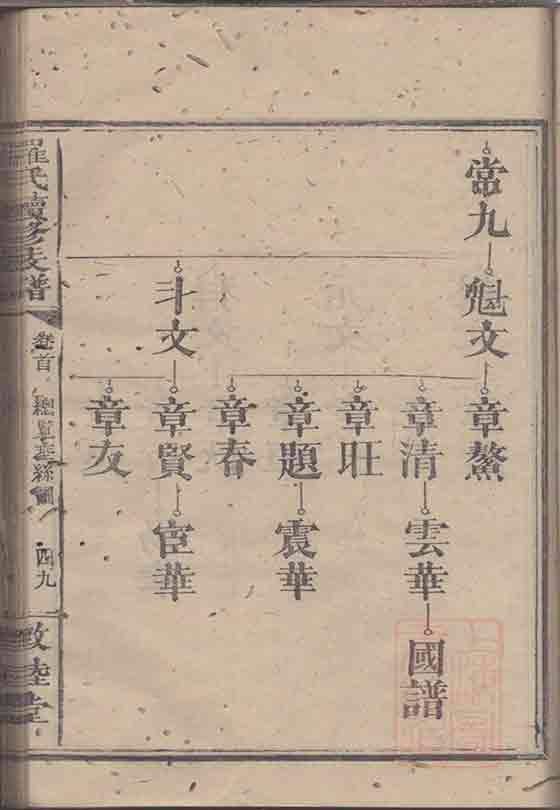 常九 魁文 章鰲
章清 雲華 國譜
章旺
章題 震華
章春
斗文 章賢 宦華
章友
羅氏續修支譜 卷首 垂絲圖 四九 敦睦堂